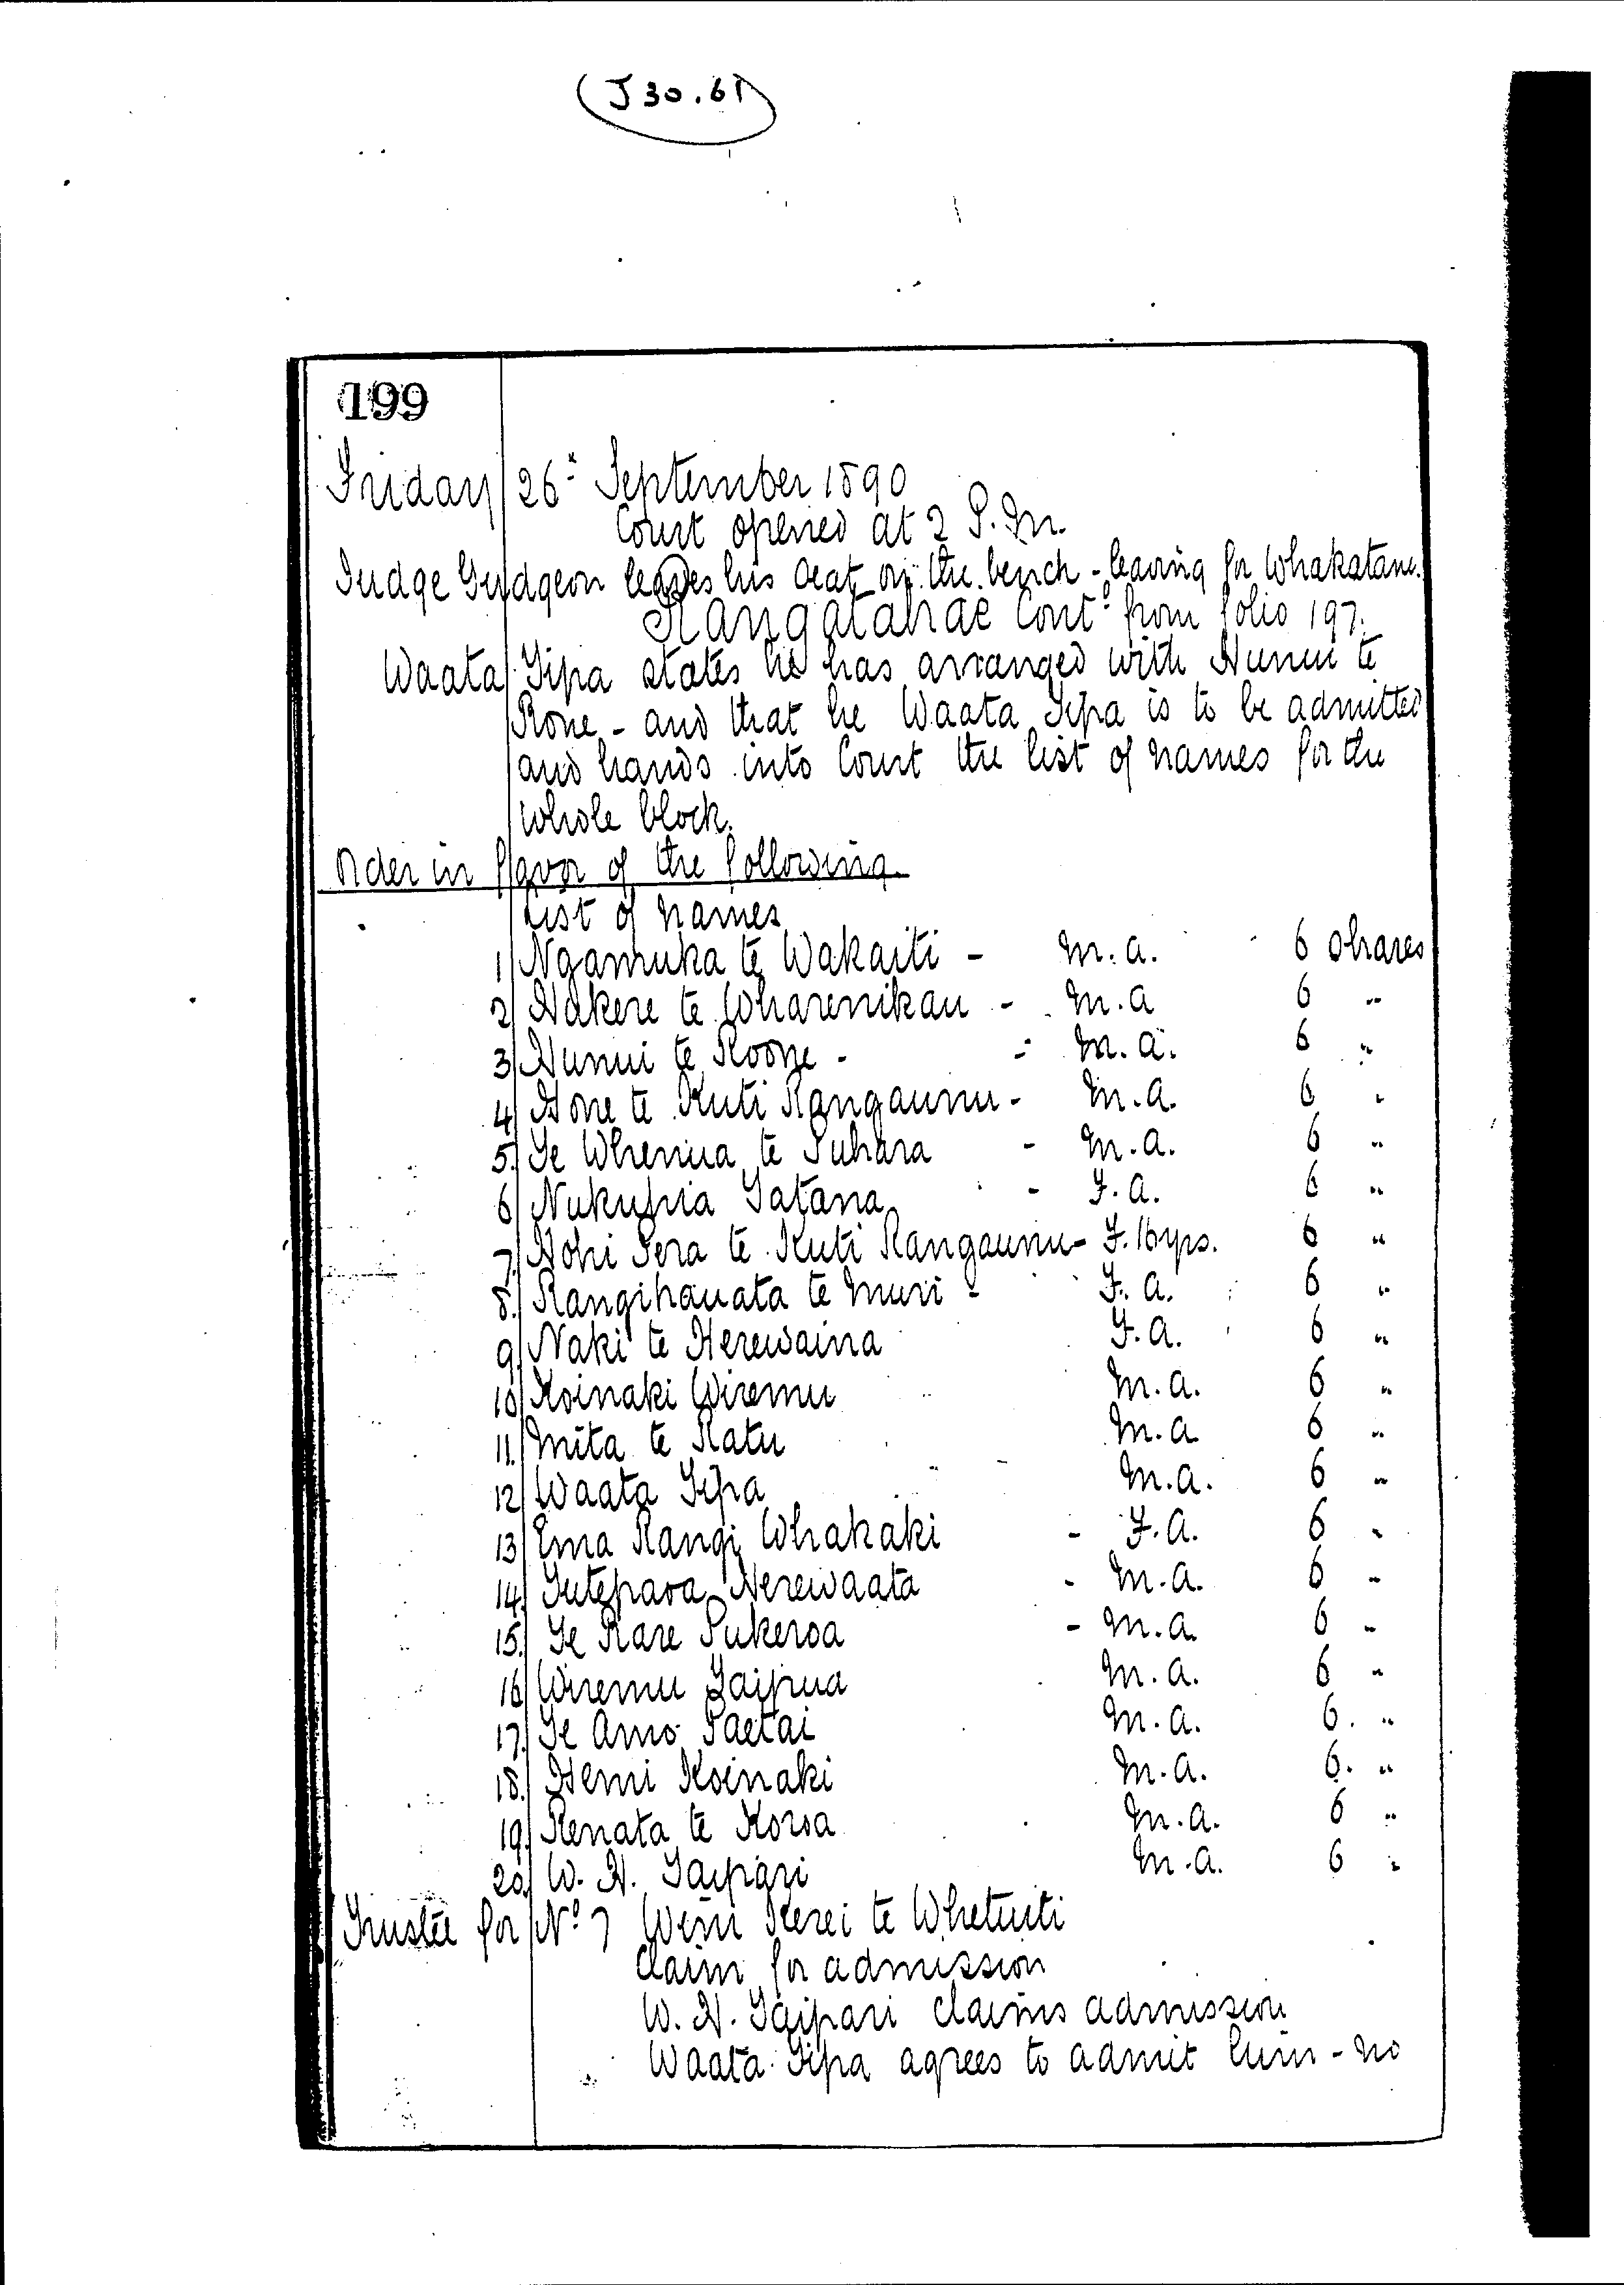 (J 30.61)
199
Friday 26th September 1890
Court opened at 2 P.M.
Judge Gudgeon leaves his seat on the bench - leaving for Whakatane.
Rangatahae Contd from folio 197.
Waata Tipa states he has arranged with Hunui te
Rone - and that he Waata Tipa is to be admitted
and hands into Court the list of names for the
whole block.
Order in favor of the following
List of names
1 Ngamuka te Wakaiti - M.A. 6 shares
2 Hakere te Wharenikau - M.A 6 "
3 Hunui te Roone - - M.A. 6 "
4 Hone te Kuti Rangaunu - M.A. 6 "
5. Te Whenua te Puhara - M.A. 6 "
6 Nukuhia Tatana - F.A. 6 "
7. Hohi Pera te Kuti Rangaunu - F. 16 yrs. 6 "
8. Rangihauata te Muri - F.A. 6 "
9. Naki te Herewaina F.A. 6 "
10 Koinaki Wiremu M.A. 6 "
11. Mita te Ratu M.A 6 "
12 Waata Tipa M.A. 6 "
13 Ema Rangi Whakaki - F.A. 6 "
14. Tutepara Herewaata - M.A. 6 "
15. Te Rare Pukeroa - M.A. 6 "
16 Wiremu Taipua M.A. 6 "
17. Te Amo Paetai M.A. 6. "
18. Hemi Koinaki M.A. 6. "
19. Renata te Koroa M.A. 6 "
20. W. H. Taipari M.A. 6 "
Trustee for No 7 Wini Kerei te Whetuiti
Claim for admission
W. H. Taipari claims admission
Waata Tipa agrees to admit him - no